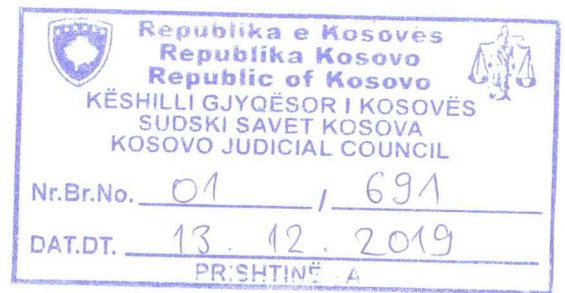 Republika e Kosovës
Republika Kosovo
Republic of Kosovo
KËSHILLI GJYQËSOR I KOSOVËS
SUDSKI SAVET KOSOVA
KOSOVO JUDICIAL COUNCIL
Nr.Br.No. 01 / 691
DAT.DT. 13. 12. 2019
PRISHTINË